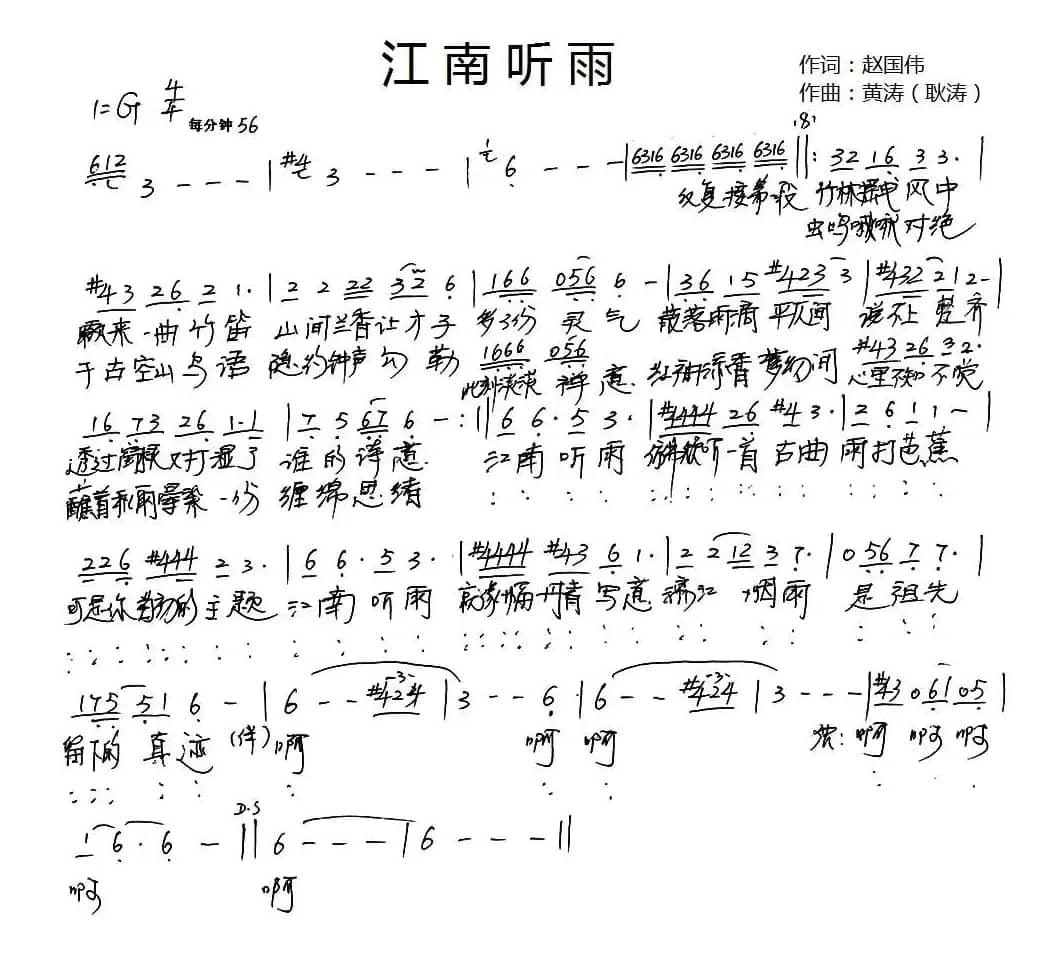 江南听雨
作词：赵国伟
作曲：黄涛（耿涛）
1=G 4/4 每分钟56
612 3 - - - | #4 3 - - - | 1 6 - - - | 6316 6316 6316 6316 ‖: 32 16 3 3· |
反复接第二段 竹林 风中
虫鸣 对绝
#43 26 2 1· | 2 2 22 32 6 | 166 056 6 - | 36 15 #423 3 | #432 2 12 - |
飘来一曲竹笛 山间兰香让才子 多了份 灵气 散落雨滴 平仄间 说不上 整齐
1666 056 #43 26 32·
千古空山鸟语 隐约钟声勾勒 此刻淡淡 禅意 红袖添香梦幻间 心里不知不觉
16 73 26 1·1 | 7 5 67 6 - :‖ 6 6· 5 3· | #4444 26 #4 3· | 2 6 1 1 - |
透过 又打湿了 谁的诗意 江南听雨 一首古曲 雨打芭蕉
蘸着秋雨晕染一份 缠绵思绪
226 #444 2 3· | 6 6· 5 3· | #4444 #43 6 1· | 2 2 12 3 7· | 0 56 7 7· |
可是你 的主题 江南听雨 就象一幅丹青写意 烟雨 是祖先
175 51 6 - | 6 - - #424 | 3 - - 6· | 6 - - #424 | 3 - - - | #43 061 05 |
留下的 真迹 (伴)啊 啊 啊 啊 啊 啊
D.S
1 6· 6 - ‖ 6 - - - | 6 - - - ‖
啊 啊